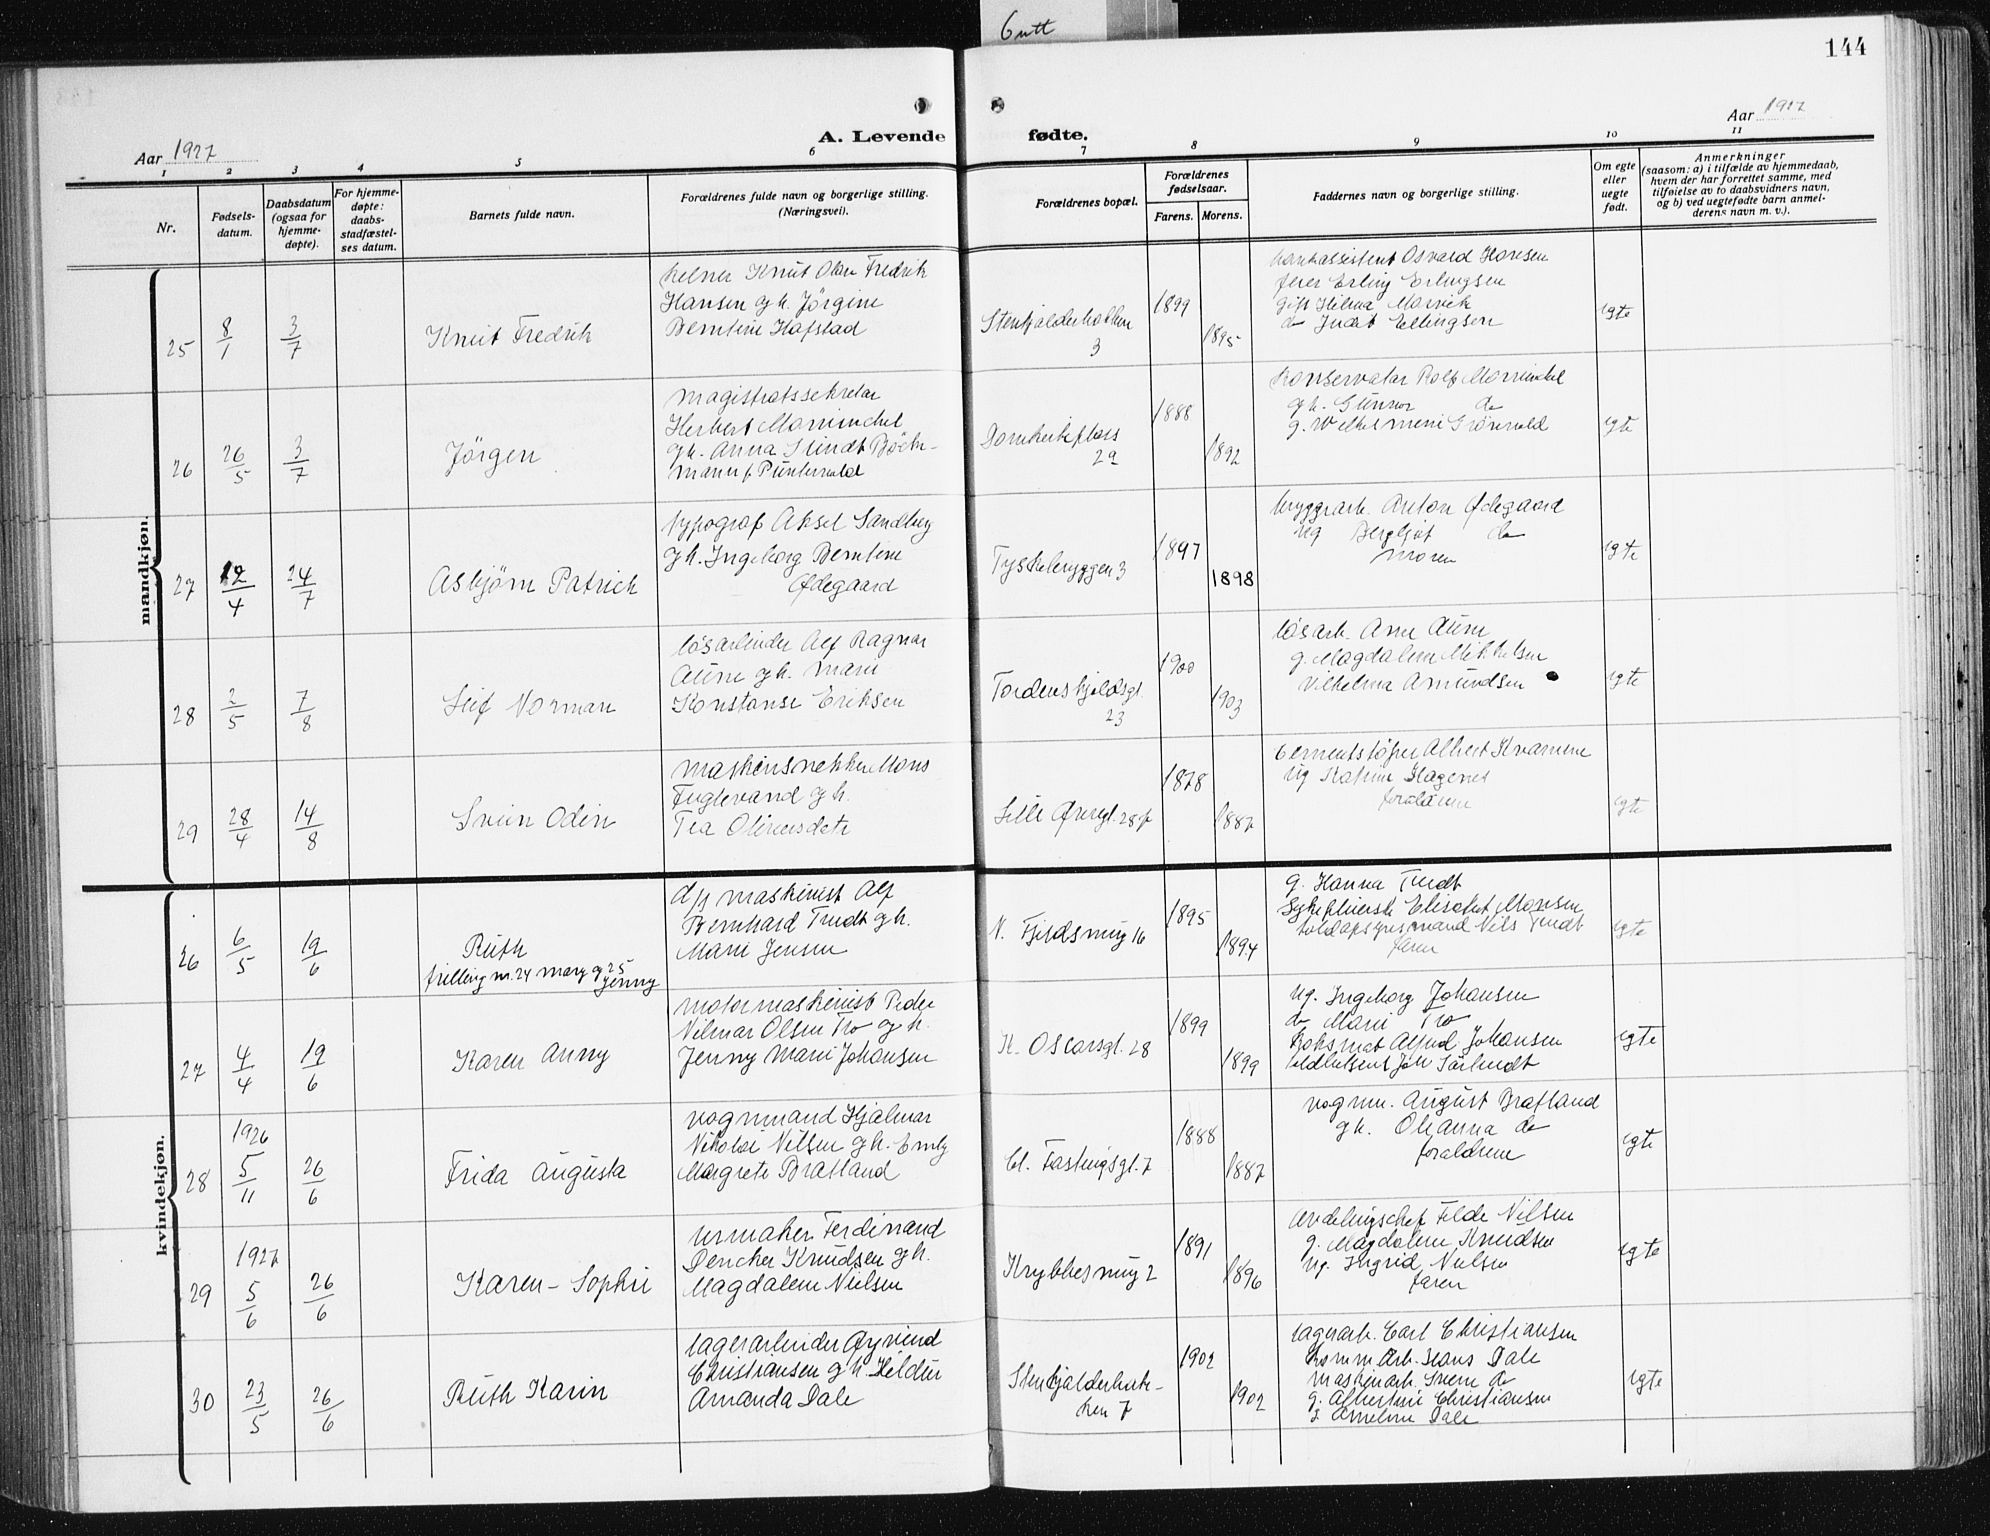 Gutt
144
Aar 1927
A. Levende
fødte.
Aar 1927
1 2 3 4 5 6 7 8 9 10 11
Nr.
Fødsels-
datum.
Daabsdatum
(ogsaa for
hjemme-
døpte).
For hjemme-
døpte:
daabs-
stadfæstel-
ses datum.
Barnets fulde navn.
Forældrenes fulde navn og borgerlige stilling.
(Næringsvei).
Forældrenes bopæl.
Forældrenes
fødselsaar.
Farens. Morens.
Faddernes navn og borgerlige stilling.
Om egte
eller
uegte
født.
Anmerkninger
(saasom: a) i tilfælde av hjemmedaab,
hvem der har forrettet samme, med
tilføielse av to daabsvidners navn,
og b) ved uegtefødte barn anmel-
derens navn m. v.).
mandkjøn.
25
8/1
3/7
Knut Fredrik
kelner Knut Olav Fredrik
Hansen og h. Jörgine
Berntine Hafstad
Stenkjelderbakken
3
1899
1895
Osvard Hansen
Erling Erlingsen
gift Hilma
do Ellingsen
egte
26
26/5
3/7
Jörgen
magistratssekretær
Herbert
og h. Anna Sundt Böch-
mann f.
Domkirkeplass
2a
1888
1892
Konservator Rolf
og h. Gunnor do
g. Grönvold
egte
27
12/4
24/7
Asbjörn Patrick
typograf Aksel Sandberg
og h. Ingeborg Berntine
Ødegaard
Tyskebryggen 3
1897
1898
bryggearb. Anton Ødegaard
ug Bergljot do
moren
egte
28
2/5
7/8
Leif Norman
lösarbeider Alf Ragnar
Aune og h. Marie
Konstanse Eriksen
Tordenskjoldsgt.
23
1900
1903
lösarb. Arne Aune
g. Magdalene Mikkelsen
Vilhelma Amundsen
egte
29
28/4
14/8
Svein Odin
maskinsnekker Mons
Fuglevand og h.
Tea
Lille Øvregt. 28
1878
1887
Cementstöper Albert Kvamme
ug Katrine Hagenes
forældrene
egte
kvindekjøn.
26
6/5
19/6
Ruth
trilling m. 24 Mary og 25
Jenny
d/s maskinist Alf
Bernhard Tundt og h.
Marie Jensen
N. Fjeldsmug 16
1895
1894
g. Hanna Tundt
Sykepleierske Elisabet Monsen
Nils Tundt
faren
egte
27
4/4
19/6
Karen Anny
motormaskinist Peder
Vilmar Olsen Tro og h.
Jenny Marie Johansen
K. Oscarsgt. 28
1899
1899
ug. Ingeborg Johansen
do Marie Tro
Johansen
egte
28
1926
5/11
26/6
Frida Augusta
vognmand Hjalmar
Nikolai Nilsen og h. Emly
Margrete Bratland
Cl. Fastingsgt. 7
1888
1887
vognm. August Bratland
og h. Olianna do
forældrene
egte
29
1927
5/6
26/6
Karen-Sophie
urmaker Ferdinand
Dencker Knudsen og h.
Magdalene Nielsen
Krybbesmug 2
1891
1896
Avdelingschef Nilsen
g. Magdalene Knudsen
ug. Ingrid Nielsen
faren
egte
30
23/5
26/6
Ruth Karin
lagerarbeider Øyvind
Christiansen og h. Hildur
Amanda Dale
Stenkjelderbak-
ken 7
1902
1902
lagerarb. Carl Christiansen
komm. arb. Hans Dale
maskinarb. Sverre do
g. Albertine Christiansen
g. Dale
egte